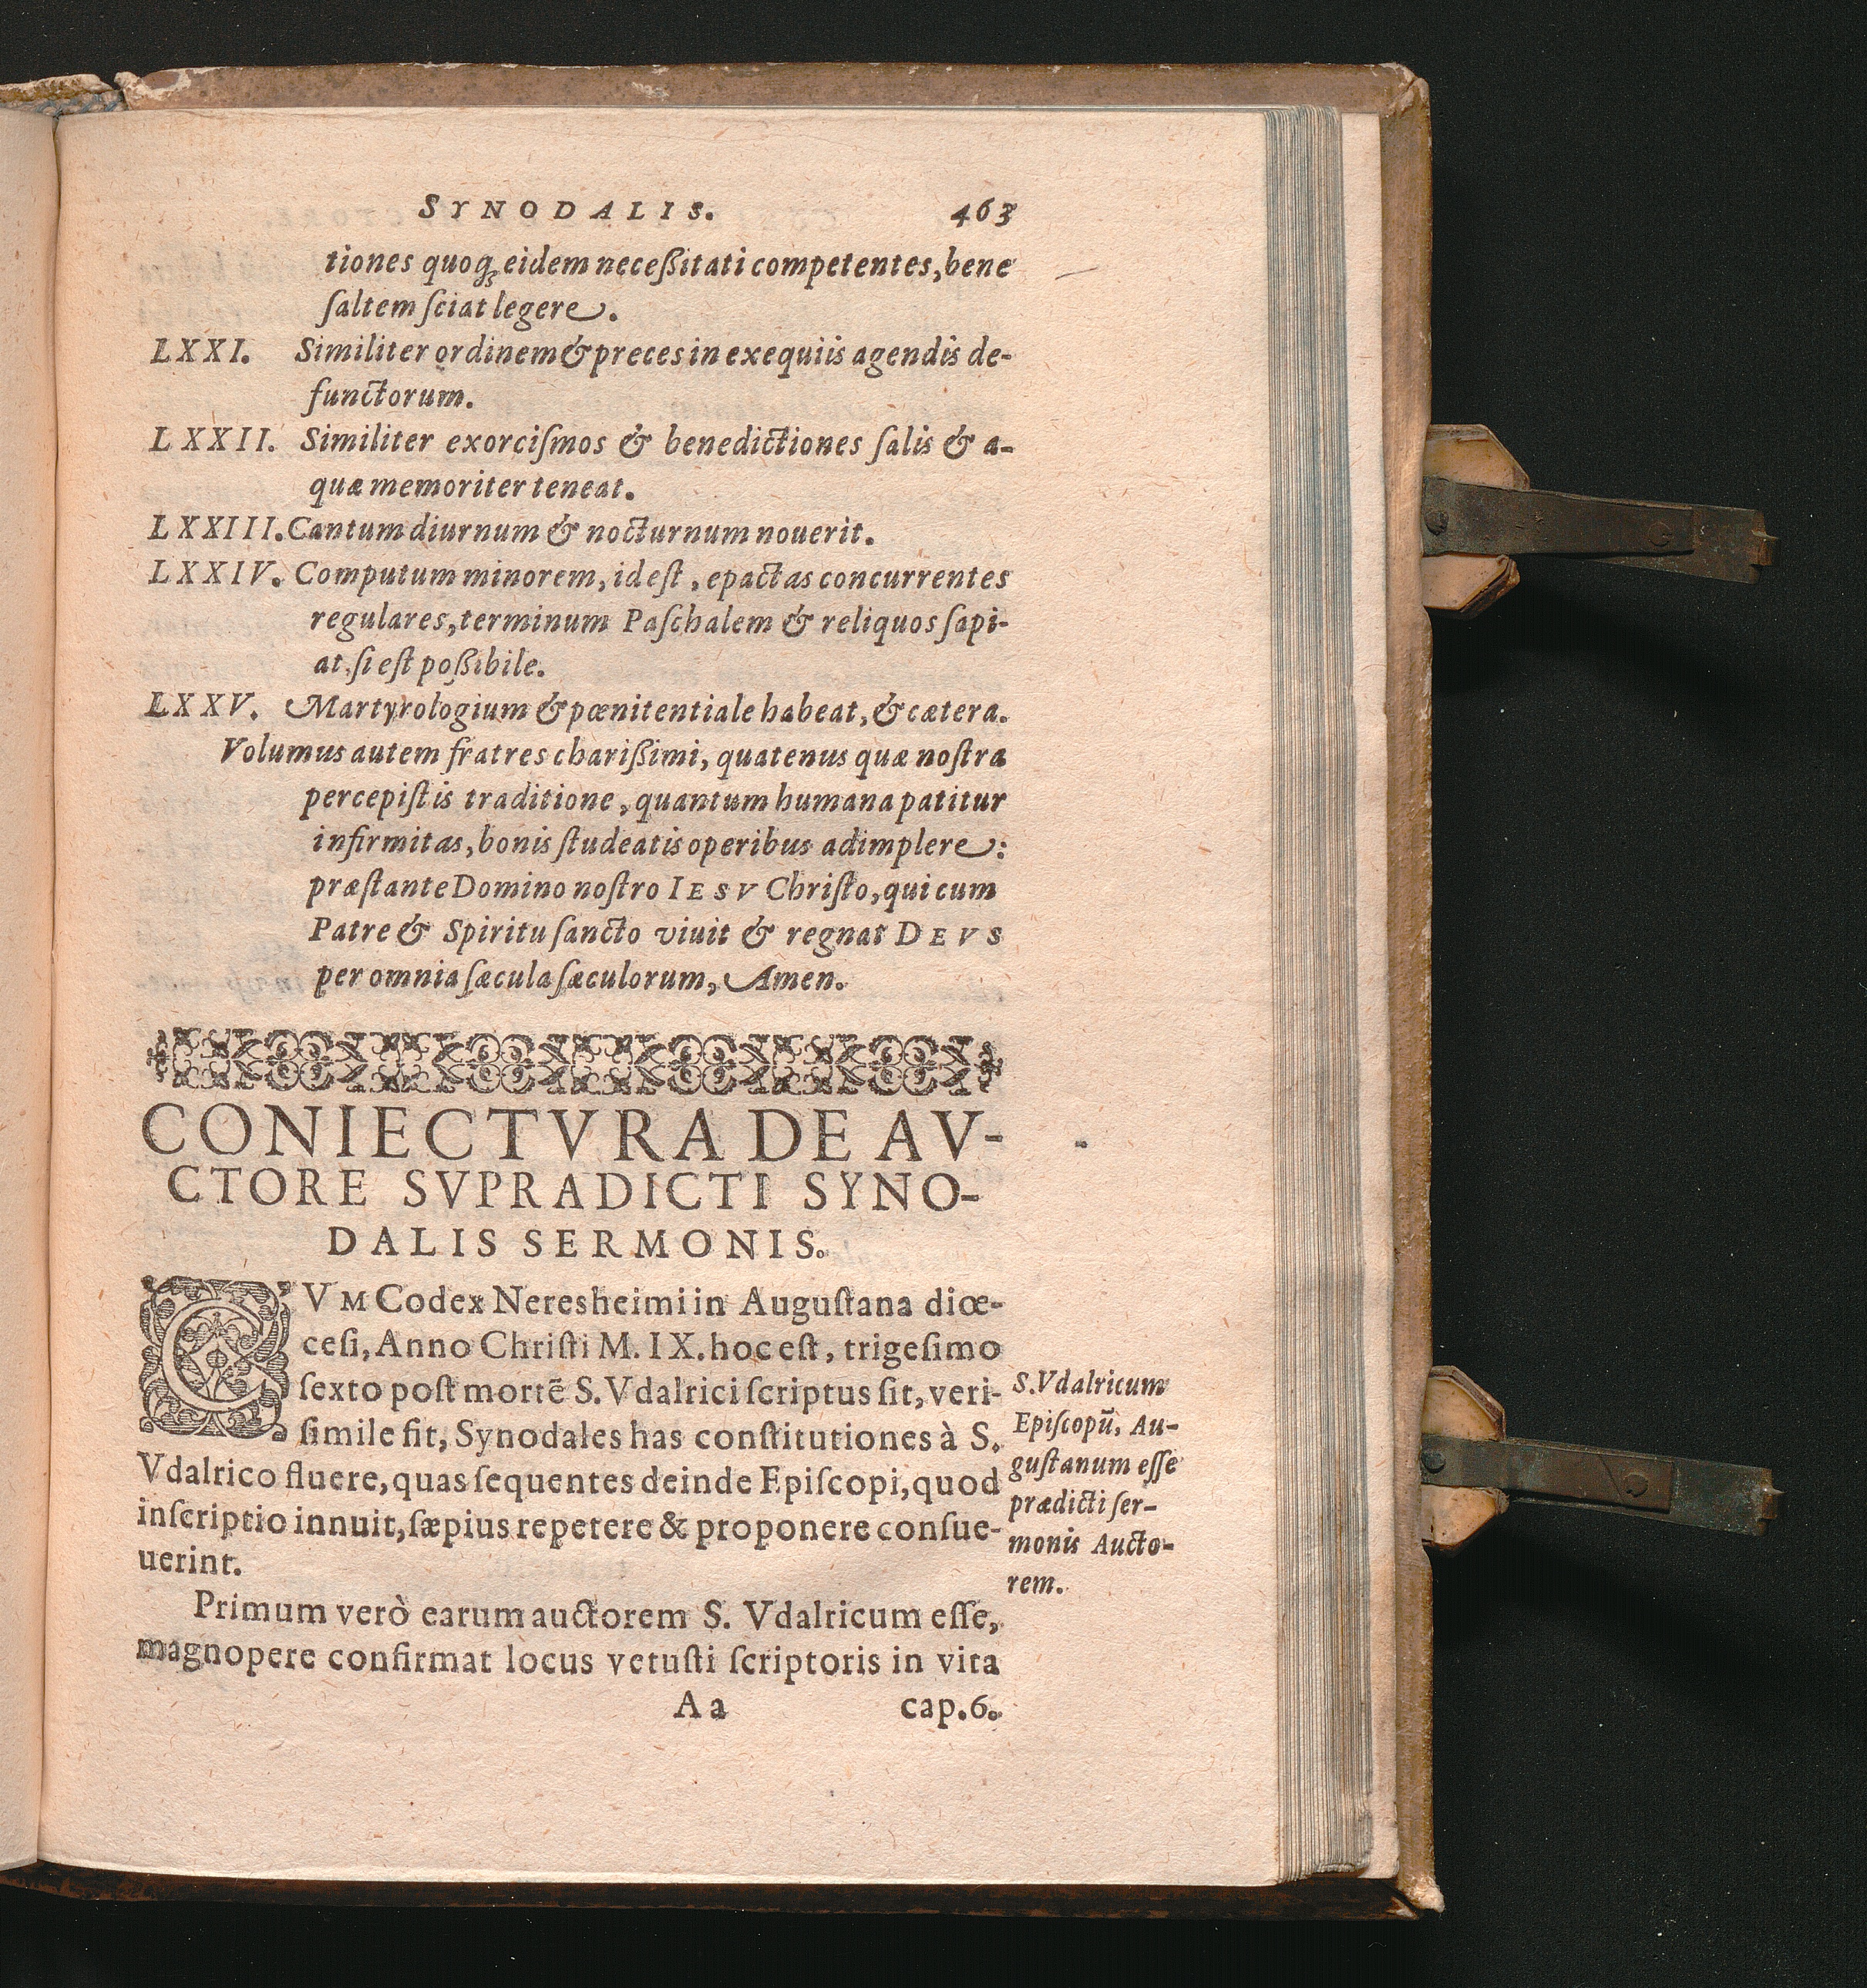 SYNODALIS. 463
tiones quoq; eidem neceßitati competentes, bene
ſaltem ſciat legere.
LXXI. Similiter ordinem & preces in exequiis agendis de-
functorum.
LXXII. Similiter exorciſmos & benedictiones ſalis & a-
quæ memoriter teneat.
LXXIII. Cantum diurnum & nocturnum nouerit.
LXXIV. Computum minorem, id eſt, epactas concurrentes
regulares, terminum Paſchalem & reliquos ſapi-
at, ſi eſt poßibile.
LXXV. Martyrologium & pœnitentiale habeat, & cætera.
Volumus autem fratres charißimi, quatenus quæ noſtra
percepiſtis traditione, quantum humana patitur
infirmitas, bonis ſtudeatis operibus adimplere:
præſtante Domino noſtro IESV Chriſto, qui cum
Patre & Spiritu ſancto viuit & regnat DEVS
per omnia ſæcula ſæculorum, Amen.
CONIECTVRA DE AV-
CTORE SVPRADICTI SYNO-
DALIS SERMONIS.
CVM Codex Neresheimi in Auguſtana diœ-
ceſi, Anno Chriſti M. IX. hoc eſt, trigeſimo
ſexto poſt mortē S. Vdalrici ſcriptus ſit, veri-
ſimile fit, Synodales has conſtitutiones à S.
Vdalrico fluere, quas ſequentes deinde Epiſcopi, quod
inſcriptio innuit, ſæpius repetere & proponere conſue-
uerint.
S. Vdalricum
Epiſcopū, Au-
guſtanum eſſe
prædicti ſer-
monis Aucto-
rem.
Primum verò earum auctorem S. Vdalricum eſſe,
magnopere confirmat locus vetuſti ſcriptoris in vita
Aa cap. 6.